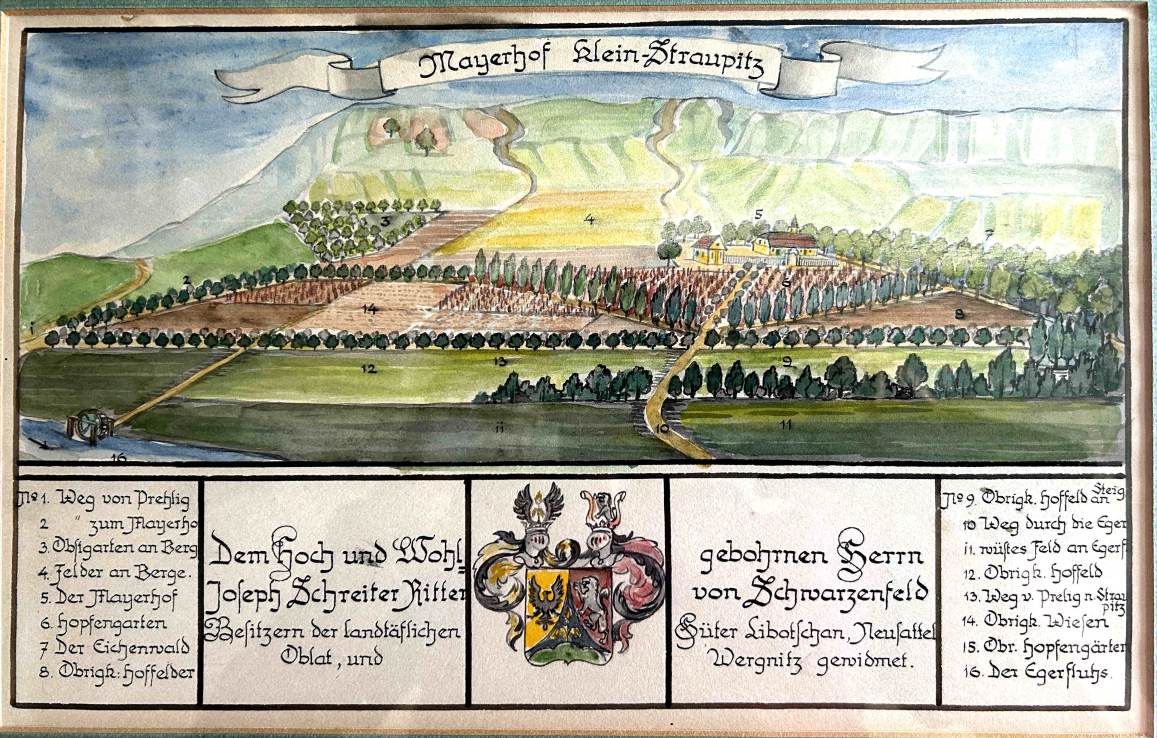 Mayerhof Klein-Straupitz
5
3
4
7
2
6
14
8
1
13
12
9
11
10
11
16
No 1. Weg von Prehlig
2 " zum Mayerho
3. Obstgarten an Berg
4. Felder an Berge.
5. Der Mayerhof
6. Hopfengarten
7 Der Eichenwald
8. Obrigk: Hoffelder
Dem Hoch und Wohl-
Joseph Schreiter Ritter
Besitzern der landtäflichen
Oblat, und
gebohrnen Herrn
von Schwarzenfeld
Güter Libotschan, Neusattel
Wergnitz gewidmet.
No 9. Obrigk. Hoffeld an Steig
10 Weg durch die Eger
11. wüstes Feld an Egerf
12. Obrigk. Hoffeld
13. Weg v. Prelig n. Straupitz
14. Obrigk. Wiesen
15. Obr. Hopfengärten
16. Der Egerfluhs.